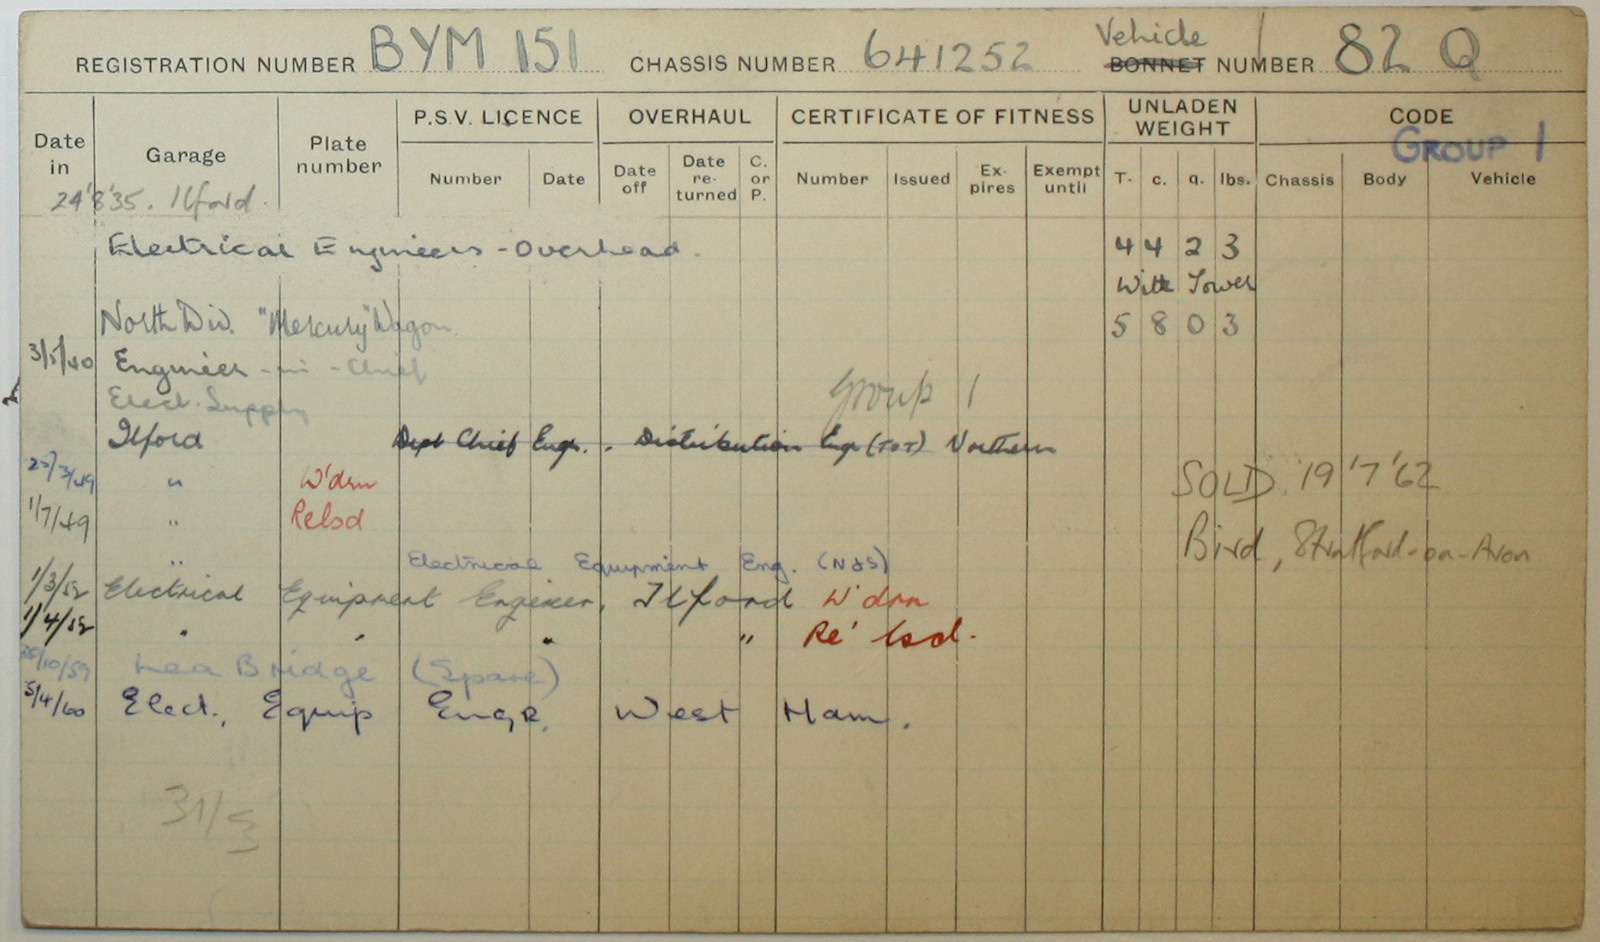 REGISTRATION NUMBER BYM 151 CHASSIS NUMBER 641252 Vehicle BONNET NUMBER 82 Q
Date in Garage Plate number P.S.V. LICENCE Number Date OVERHAUL Date off Date re-turned C. or P. CERTIFICATE OF FITNESS Number Issued Ex-pires Exempt until UNLADEN WEIGHT T. c. q. lbs. CODE GROUP 1 Chassis Body Vehicle
24'8'35. Ilford
Electrical Engineers - Overhead. 4 4 2 3
With Tower
North Div. "Mercury" Wagon 5 8 0 3
3/5/40 Engineer - in - Chief
Elect. Supply Group 1
Ilford Dept Chief Engr. Distribution Engr (T&T) Northern
/3/49 " W'drn SOLD 19'7'62
1/7/49 " Relsd
" Electrical Equipment Eng. (N&S) Bird, Stratford-on-Avon
1/3/52 Electrical Equipment Engineer, Ilford W'drn
1/4/52 " " " " Re'lsd.
/10/59 Lea Bridge (Spare)
5/4/60 Elect., Equip Engr, West Ham.
31/5